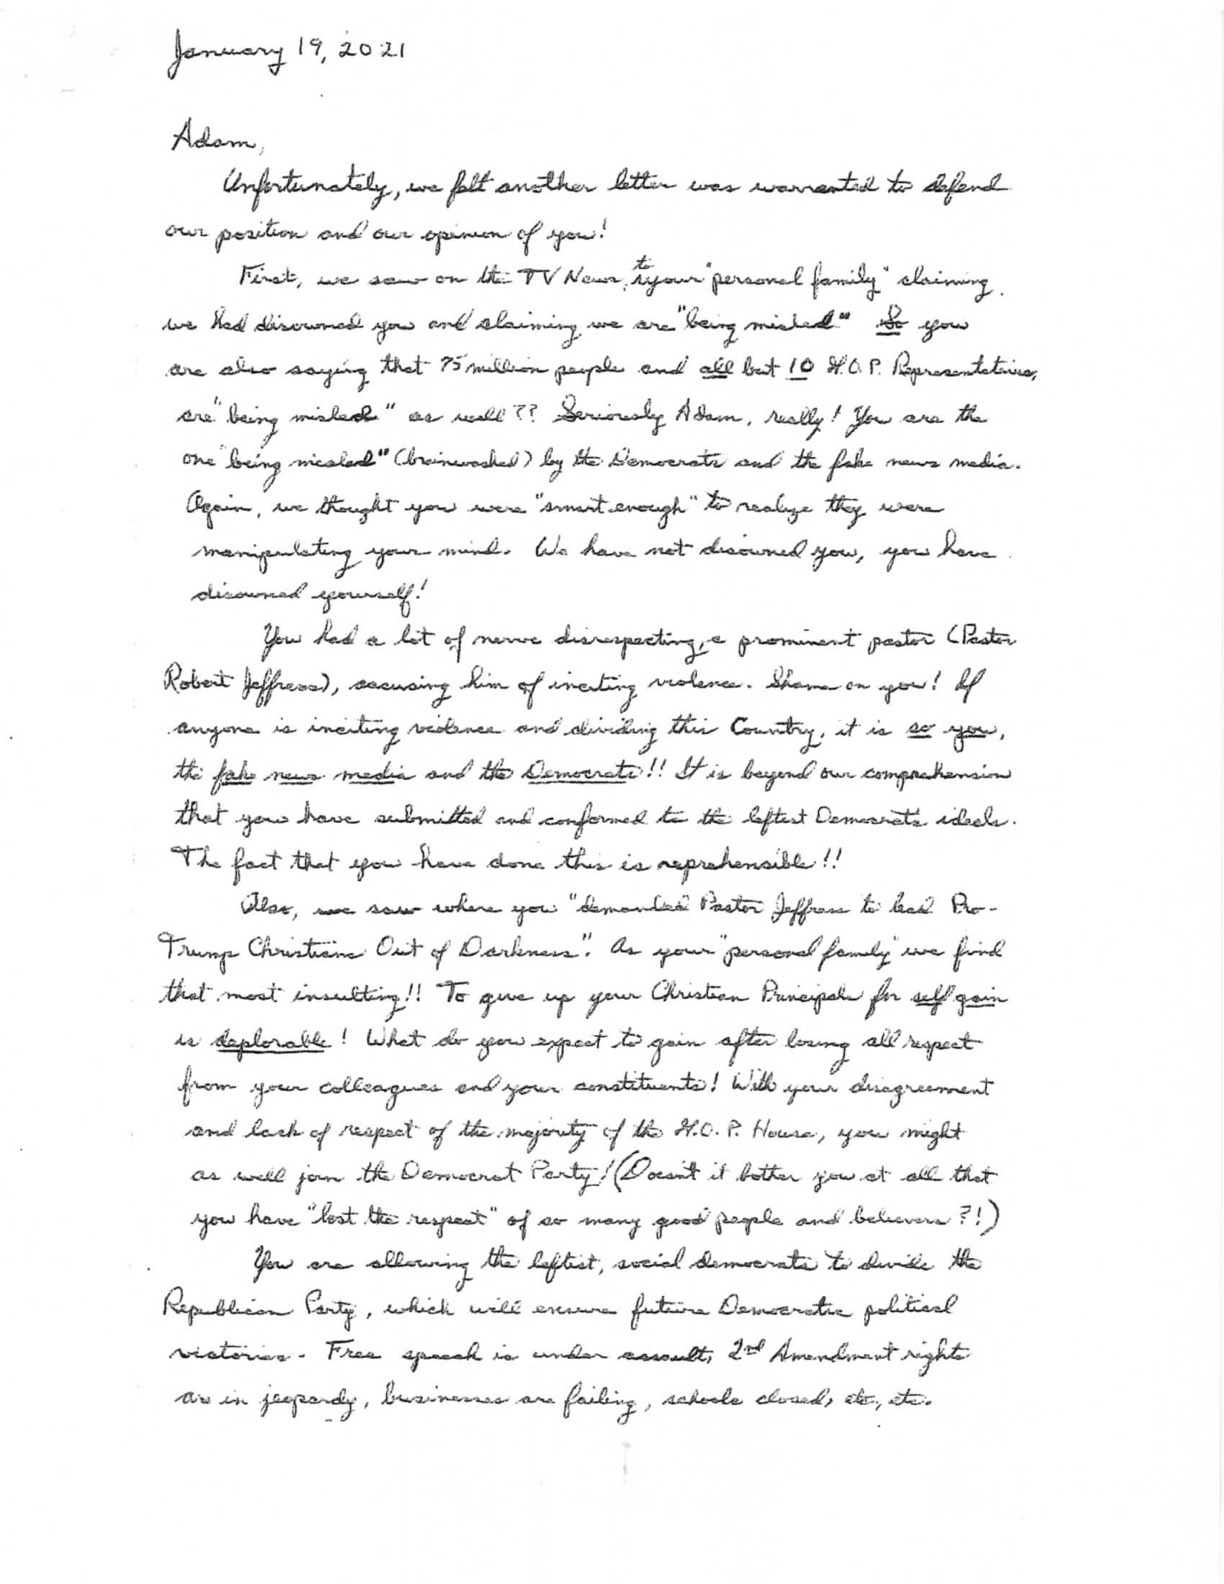 January 19, 2021
Adam,
Unfortunately, we felt another letter was warranted to defend
our position and our opinion of you!
First, we saw on the TV News, to your "personal family" claiming
we had disowned you and claiming we are "being misled" So you
are also saying that 75 million people and all but 10 G.O.P. Representatives,
are "being misled" as well?? Seriously Adam, really! You are the
one "being misled" (brainwashed) by the Democrats and the fake news media.
Again, we thought you were "smart enough" to realize they were
manipulating your mind. We have not disowned you, you have
disowned yourself!
You had a lot of nerve disrespecting, a prominent pastor (Pastor
Robert Jeffress), accusing him of inciting violence. Shame on you! If
anyone is inciting violence and dividing this Country, it is so you,
the fake news media and the Democrats!! It is beyond our comprehension
that you have submitted and conformed to the leftest Democrats ideals.
The fact that you have done this is reprehensible!!
Also, we saw where you "demanded Pastor Jeffress to lead Pro-
Trump Christians Out of Darkness". As your "personal family" we find
that most insulting!! To give up your Christian Principals for self gain
is deplorable! What do you expect to gain after losing all respect
from your colleagues and your constituents! With your disagreement
and lack of respect of the majority of the G.O.P. House, you might
as well join the Democrat Party! (Doesn't it bother you at all that
you have "lost the respect" of so many good people and believers?!)
You are allowing the leftist, social democrats to divide the
Republican Party, which will ensure future Democratic political
victories. Free speech is under assault, 2nd Amendment rights
are in jeopardy, businesses are failing, schools closed, etc., etc.